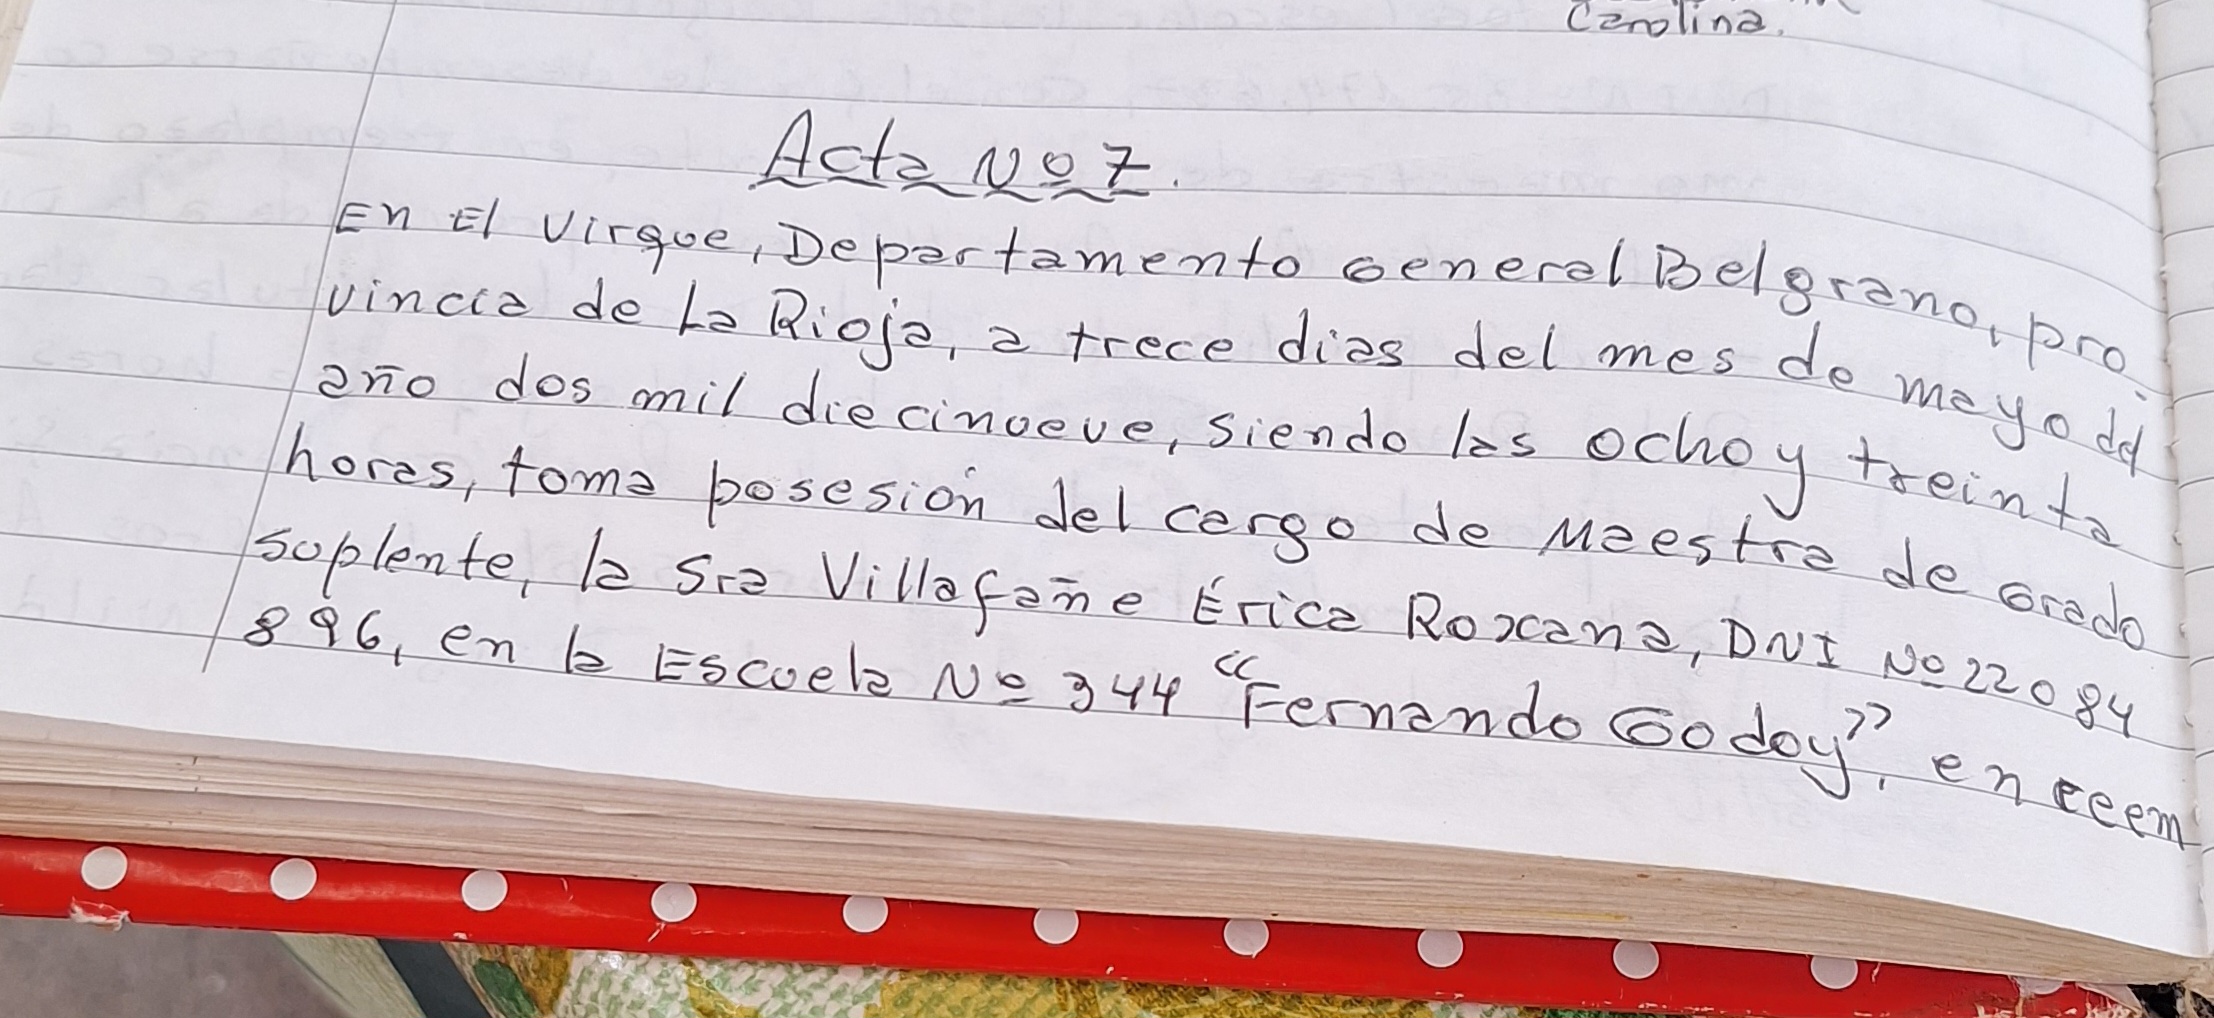 Carolina.
Acta Nº 7.
En El Virque, Departamento General Belgrano, pro
vincia de La Rioja, a trece dias del mes de mayo del
año dos mil diecinueve, siendo las ocho y treinta
horas, toma posesión del cargo de Maestra de Grado
suplente, la Sra Villafañe Érica Roxana, DNI Nº 22084
896, en la Escuela Nº 344 "Fernando Godoy", en reem